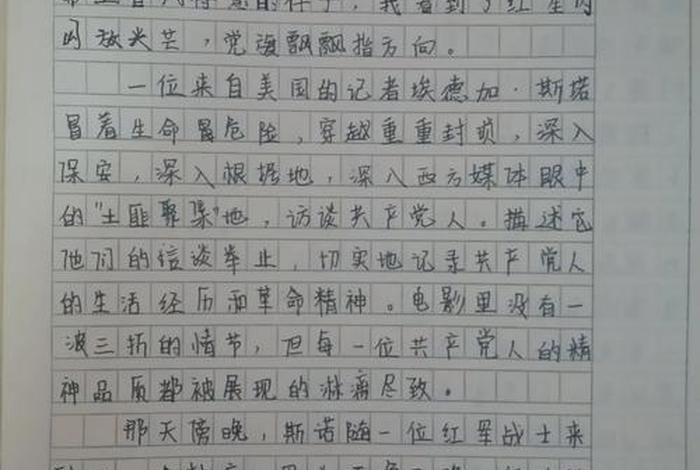 我看到了红星闪
闪放光芒，党旗飘飘指方向。
一位来自美国的记者埃德加·斯诺
冒着生命冒危险，穿越重重封锁，深入
保安，深入根据地，深入西方媒体眼中
的“土匪聚集”地，访谈共产党人。描述它
他们的言谈举止，切实地记录共产党人
的生活经历和革命精神。电影里没有一
波三折的情节，但每一位共产党人的精
神品质都被展现的淋漓尽致。
那天傍晚，斯诺随一位红军战士来